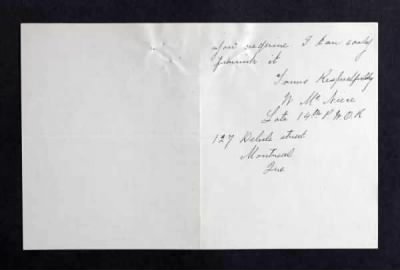 you require I can easily
furnish it
Yours Respectfully
W Mc
Late 14th P W O R
127 Delisle street
Montreal
Que